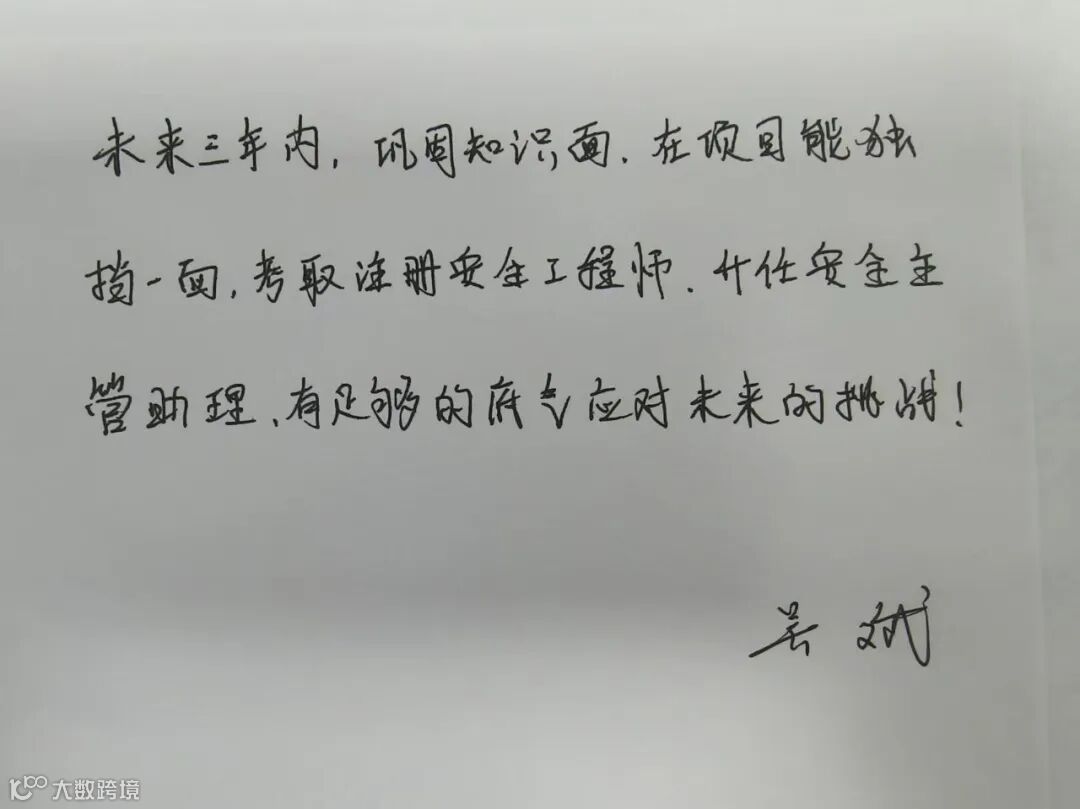 未来三年内，巩固知识面，在项目能独
挡一面，考取注册安全工程师，升任安全主
管助理，有足够的底气应对未来的挑战！
吴斌
大数跨境